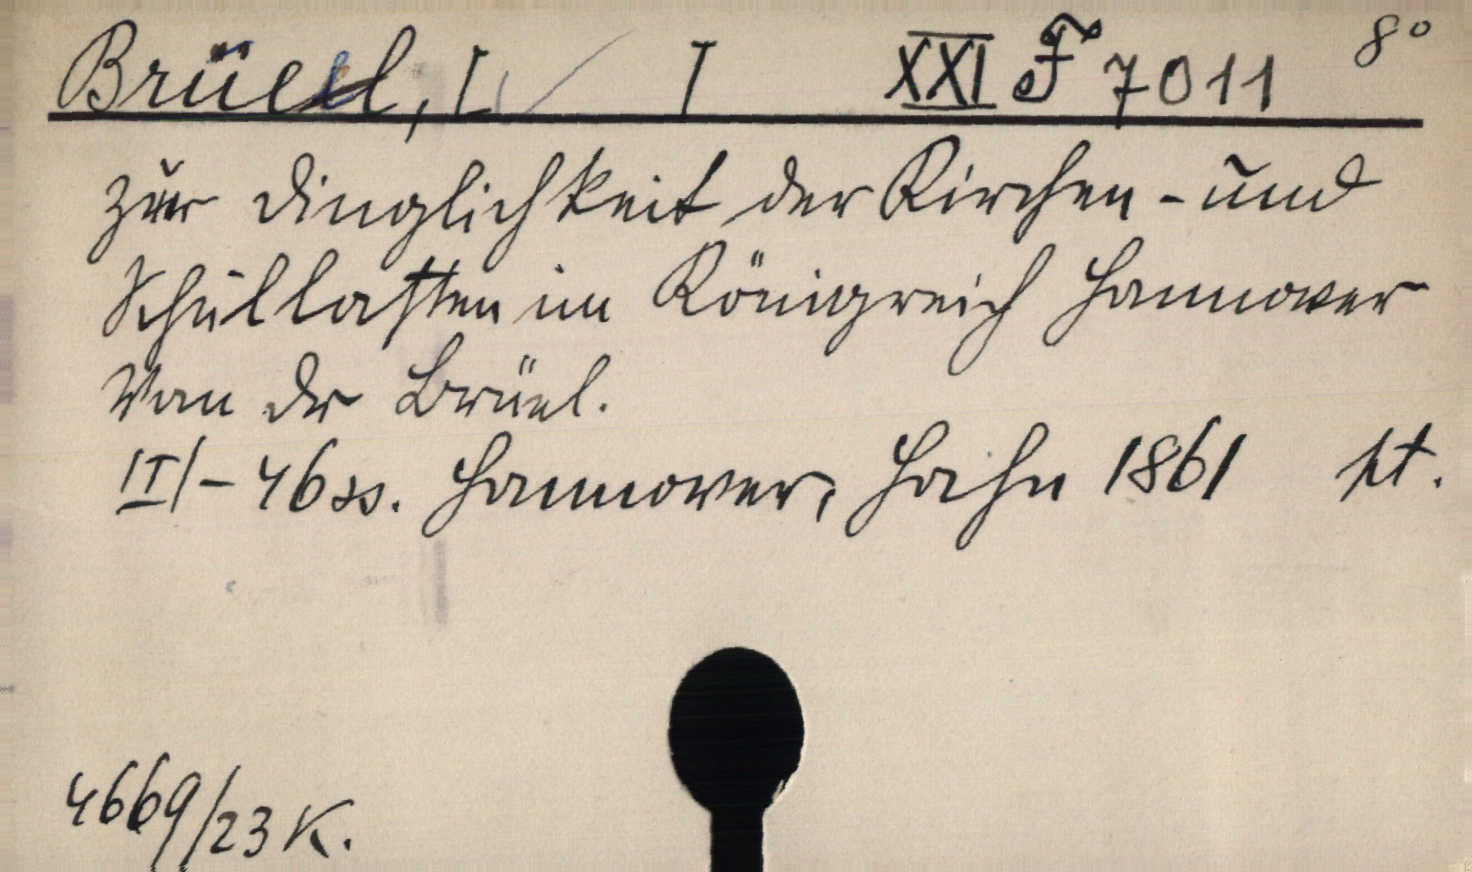 Brüel, L. I XXI F 7011 8°
Zur Dinglichkeit der Kirchen- und
Schullasten im Königreich Hannover
Von Dr Brüel.
II/-46ss. Hannover, Hahn 1861 kt.
4669/23 K.